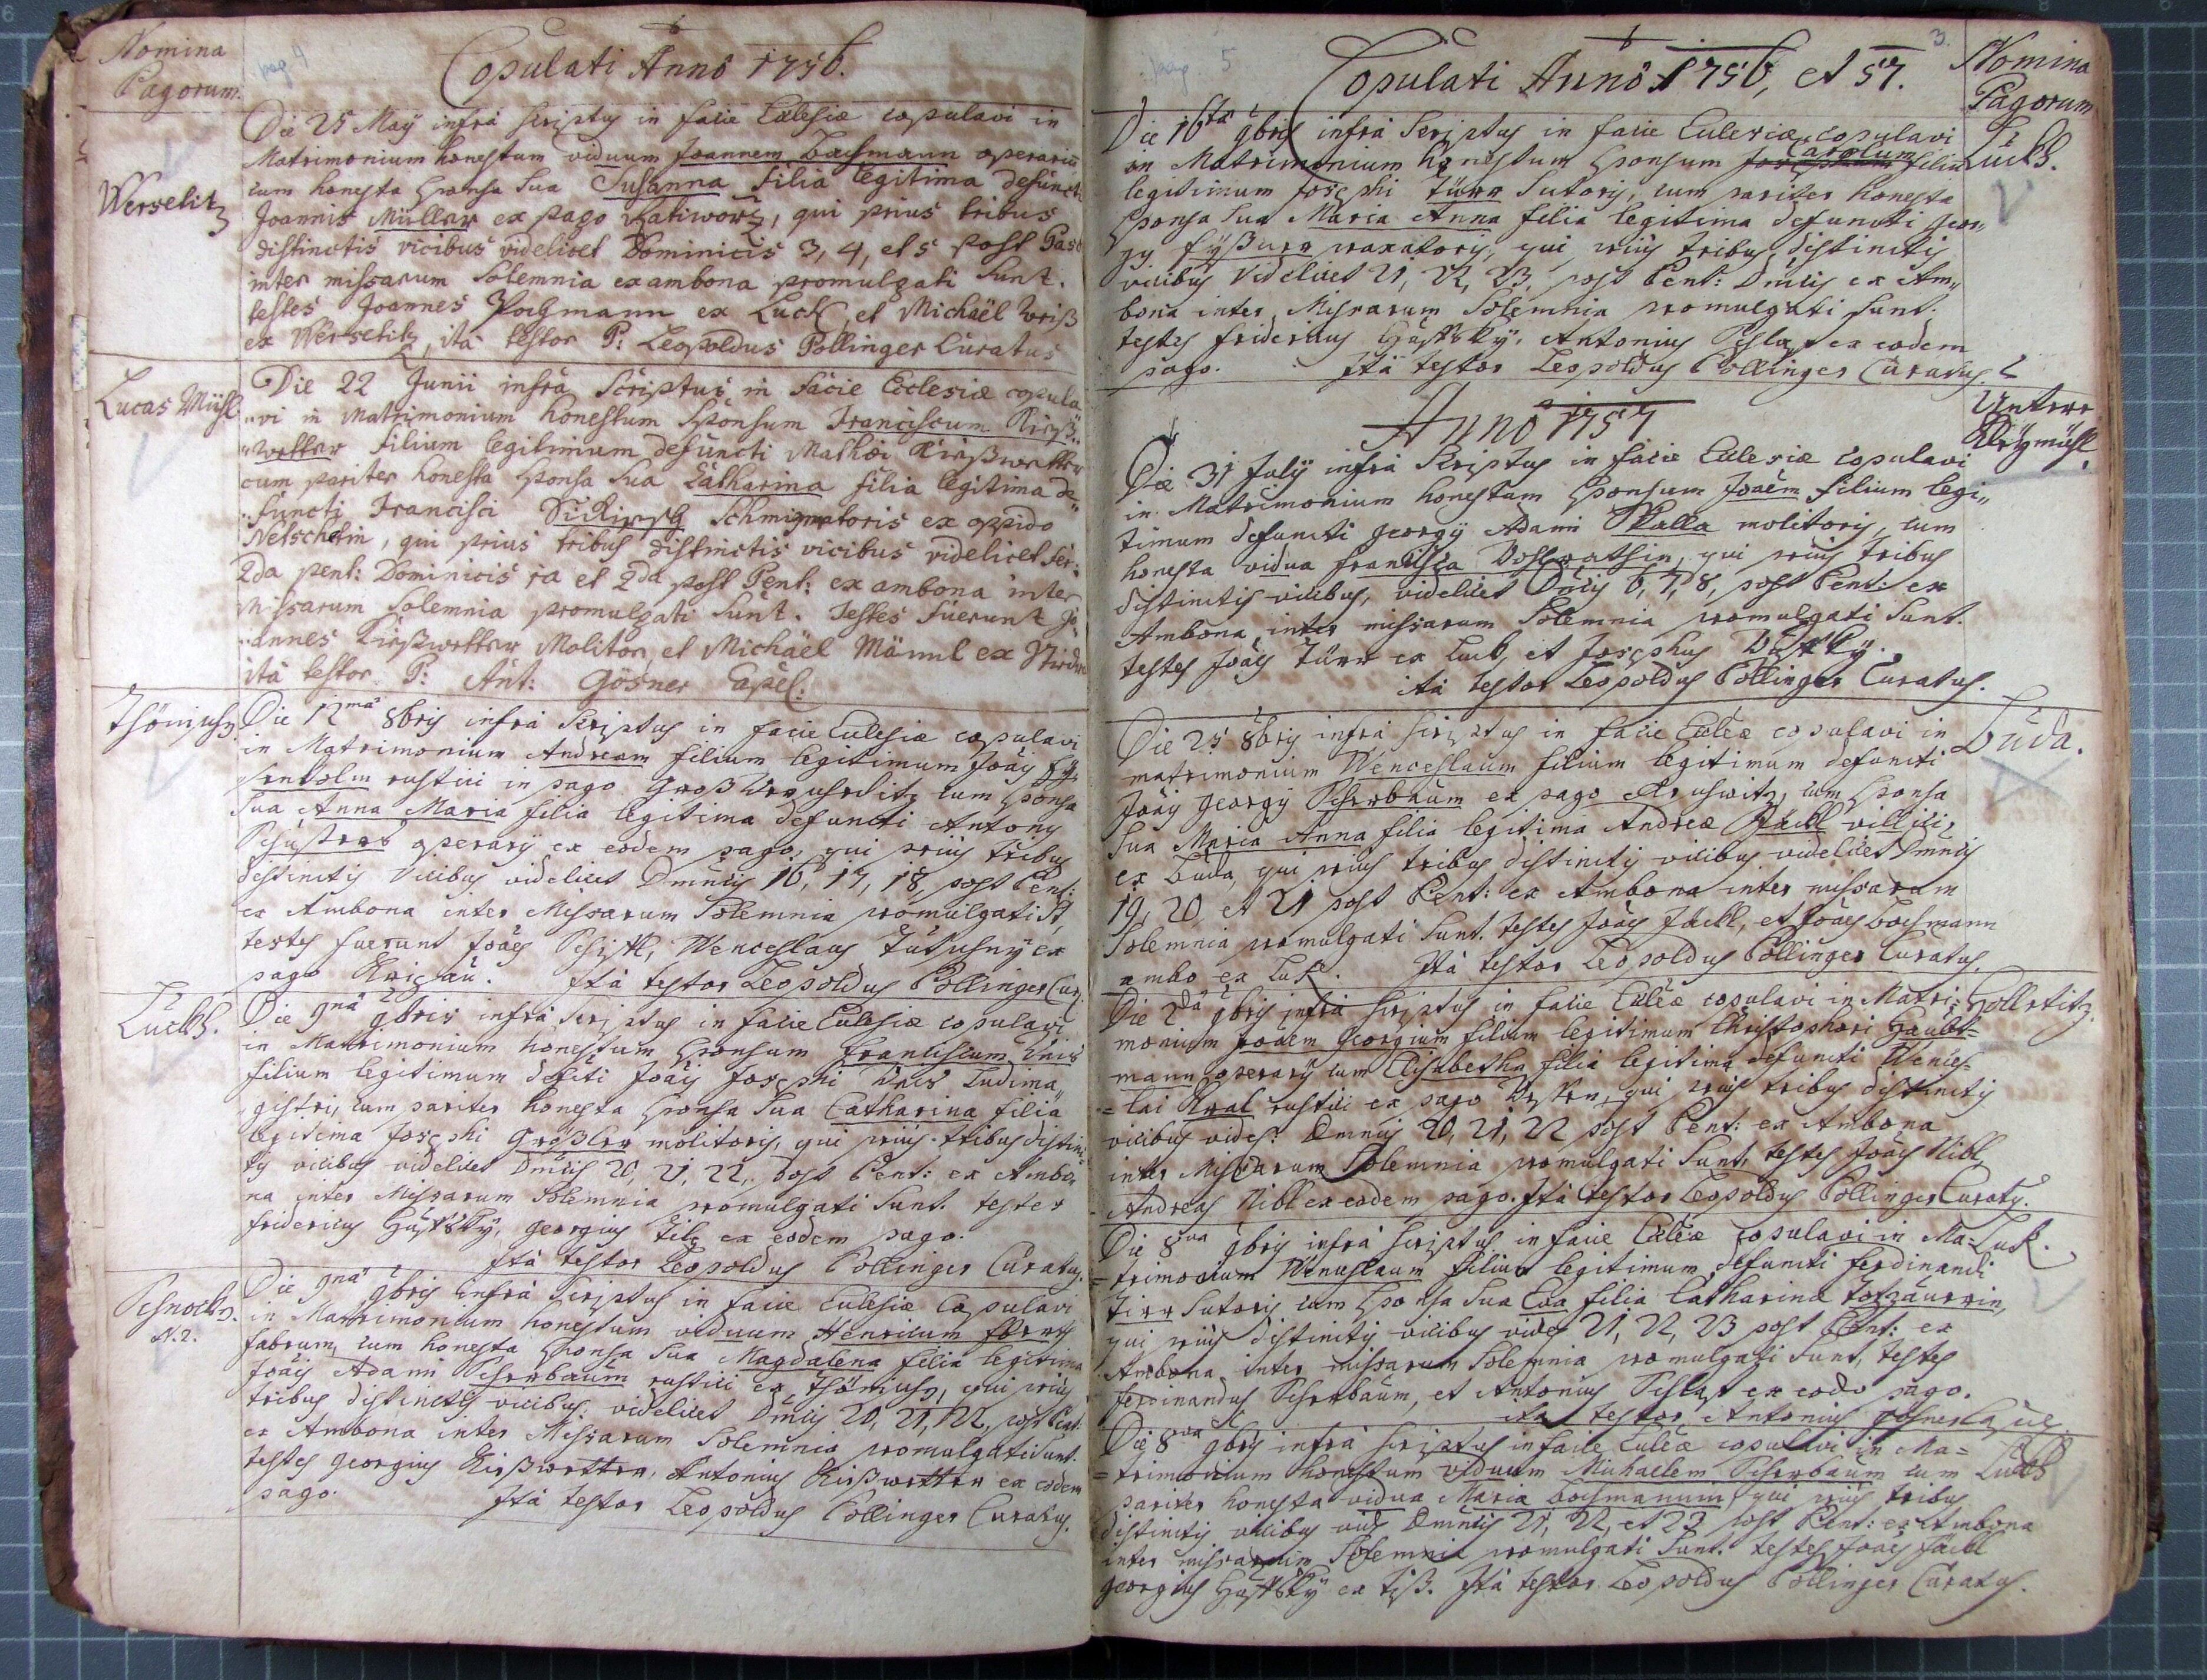 Nomina
Pagorum.
pag 4
Copulati Anno 1756.
Werschitz
Die 25 Maÿ infra scriptus in facie Ecclesiæ copulavi in
Matrimonium honestum viduum Joannem Bachmann operariũ
cum honesta sponsa sua Susanna filia legitima defuncti
Joannis Müller ex pago Ratiworz, qui prius tribus
distinctis vicibus videlicet Dominicis 3, 4, et 5 post Pasc
inter missarum solemnia ex ambona promulgati sunt.
testes Joannes Pochmann ex Luck, et Michaël Weiß
ex Werschitz, ita testor P: Leopoldus Pollinger Curatus
Lucas Mühl.
Die 22 Junii infra scriptus in facie Ecclesiæ copula
„vi in Matrimonium honestum sponsum Franciscum Kirß„
„wetter filium legitimum defuncti Mathæi Kirßwetter
cum pariter honesta sponsa sua Catharina filia legitima de„
„functi Francisci Schmigmatoris ex oppido
Netschetin, qui prius tribus distinctis vicibus videlicet fer:
2da pent: Dominicis 1a et 2da post Pent: ex ambona inter
Missarum solemnia promulgati sunt. Testes fuerunt Jo„
„annes Kirßwetter Molitor, et Michäel Männl ex
ita testor P: Ant: Gösner Capel.
Thönisch
Die 12ma 8bris infra scriptus in facie Ecclesiæ copulavi
in Matrimonium Andream filium legitimum Joãis
rustici in pago Groß cum sponsa
sua Anna Maria filia legitima defuncti Antonÿ
Schusterer operarÿ ex eodem pago, qui prius tribus
distinctis vicibus videlicet Dmñicis 16, 17, 18, post Pent:
ex Ambona inter Missarum solemnia promulgati st,
testes fuerunt Joães Wenceslaus Tutuschnÿ ex
pago Kripau. Ita testor Leopoldus Pollinger Cur.
Luckh.
Die 9na 9bris infra scriptus in facie Ecclesiæ copulavi
in Matrimonium honestum sponsum Franciscum Kreis
filium legitimum defcti Joãis Josephi Kreis Ludima„
gistri, cum pariter honesta sponsa sua Catharina filia
legitima Josephi Größler molitoris, qui prius tribus distinc„
tis vicibus videlicet Dmĩcis 20, 21, 22, post Pent: ex Ambo„
na inter Missarum solemnia promulgati sunt. testes
fridericus Hustskÿ, georgius Tilp ex eodem pago.
Ita testor Leopoldus Pollinger Curatus.
N. 2.
Die 9na 9bris infra scriptus in facie Ecclesiæ copulavi
in Matrimonium honestum viduum Henricum Ebert
fabrum, cum honesta sponsa sua Magdalena filia legitima
Joãis Adami Scherbaum rustici ex Thönisch, qui prius
tribus distinctis vicibus videlicet Dmĩcis 20, 21, 22, post Pent:
ex Ambona inter Missarum solemnia promulgati sunt.
testes georgius Kirßwetter, Antonius Kirßwetter ex eodem
pago. Ita testor Leopoldus Pollinger Curatus.
pag 5
3.
Copulati Anno 1756, et 57.
Nomina
Pagorum
Luckh.
Die 16ta 9bris infra scriptus in facie Ecclesiæ copulavi
in Matrimonium honestum sponsum Carolum filiũ
legitimum Josephi Türr sutoris, cum pariter honesta
sponsa sua Maria Anna filia legitima defuncti Geor„
gÿ qui prius tribus distinctis
vicibus videlicet 21, 22, 23, post Pent: Dmĩcis ex Am„
bona inter Missarum solemnia promulgati sunt.
testes fridericus Hustskÿ, Antonius ex eodem
pago. Ita testor Leopoldus Pollinger Curatus.
Anno 1757
Untere
Die 31 Julÿ infra scriptus in facie Ecclesiæ copulavi
in Matrimonium honestum sponsum Joaẽm filium legi„
timum defuncti georgÿ Adami Skalla molitoris, cum
honesta vidua francisca qui prius tribus
distinctis vicibus, videlicet Dmĩcis 6, 7, 8, post Pent: ex
Ambona inter missarum solemnia promulgati sunt.
testes Joães Türr ex Luck, et Josephus
ita testor Leopoldus Pollinger Curatus.
Buda.
Die 25 8bris infra scriptus in facie Eccleæ copulavi in
matrimonium Wenceslaum filium legitimum defuncti
Joãis georgÿ Scherbaum ex pago cum sponsa
sua Maria Anna filia legitima Andreæ Jäckl villici
ex Buda, qui prius tribus distinctis vicibus videlicet Dmnicis
19, 20, et 21 post Pent: ex Ambona inter missarum
solemnia promulgati sunt. testes Joães Jäckl, et Joães Bachmann
ambo ex Luk. Ita testor Leopoldus Pollinger Curatus.
Golletitz.
Die 2da 9bris infra scriptus in facie Eccleæ copulavi in Matri=
monium Joaẽm Georgium filium legitimum Christophori Haubt=
mann operarÿ cum Elisabetha filia legitima defuncti Wences=
=lai Kral rustici ex pago qui prius tribus distinctis
vicibus videl: Dmnicis 20, 21, 22 post Pent: ex Ambona
inter Missarum solemnia promulgati sunt, testes Joães Nibl,
Andreas Nibl ex eodem pago. Ita testor Leopoldus Pollinger Curatus.
Luck.
Die 8va 9bris infra scriptus in facie Eccleæ copulavi in Ma=
=trimonium Wenceslaum filium legitimum defuncti ferdinandi
Tirr sutoris cum sponsa sua Eva filia Catharinæ
qui prius distinctis vicibus videl 21, 22, 23 post Pent: ex
Ambona inter missarum solemnia promulgati sunt, testes
ferdinandus Scherbaum, et Antonius ex eodo pago.
ita testor Antonius Gösner
Luckh
Die 8va 9bris infra scriptus in facie Eccleæ copulavi in Ma=
=trimonium honestum viduum Michaelem Scherbaum cum
pariter honesta vidua Maria Bachmannin, qui prius tribus
distinctis vicibus videl Dmnicis 21, 22, et 23 post Pent: ex Ambona
inter missarum solemnia promulgati sunt. testes Joães Jäckl
georgius Hustskÿ ex Tiß. Ita testor Leopoldus Pollinger Curatus.